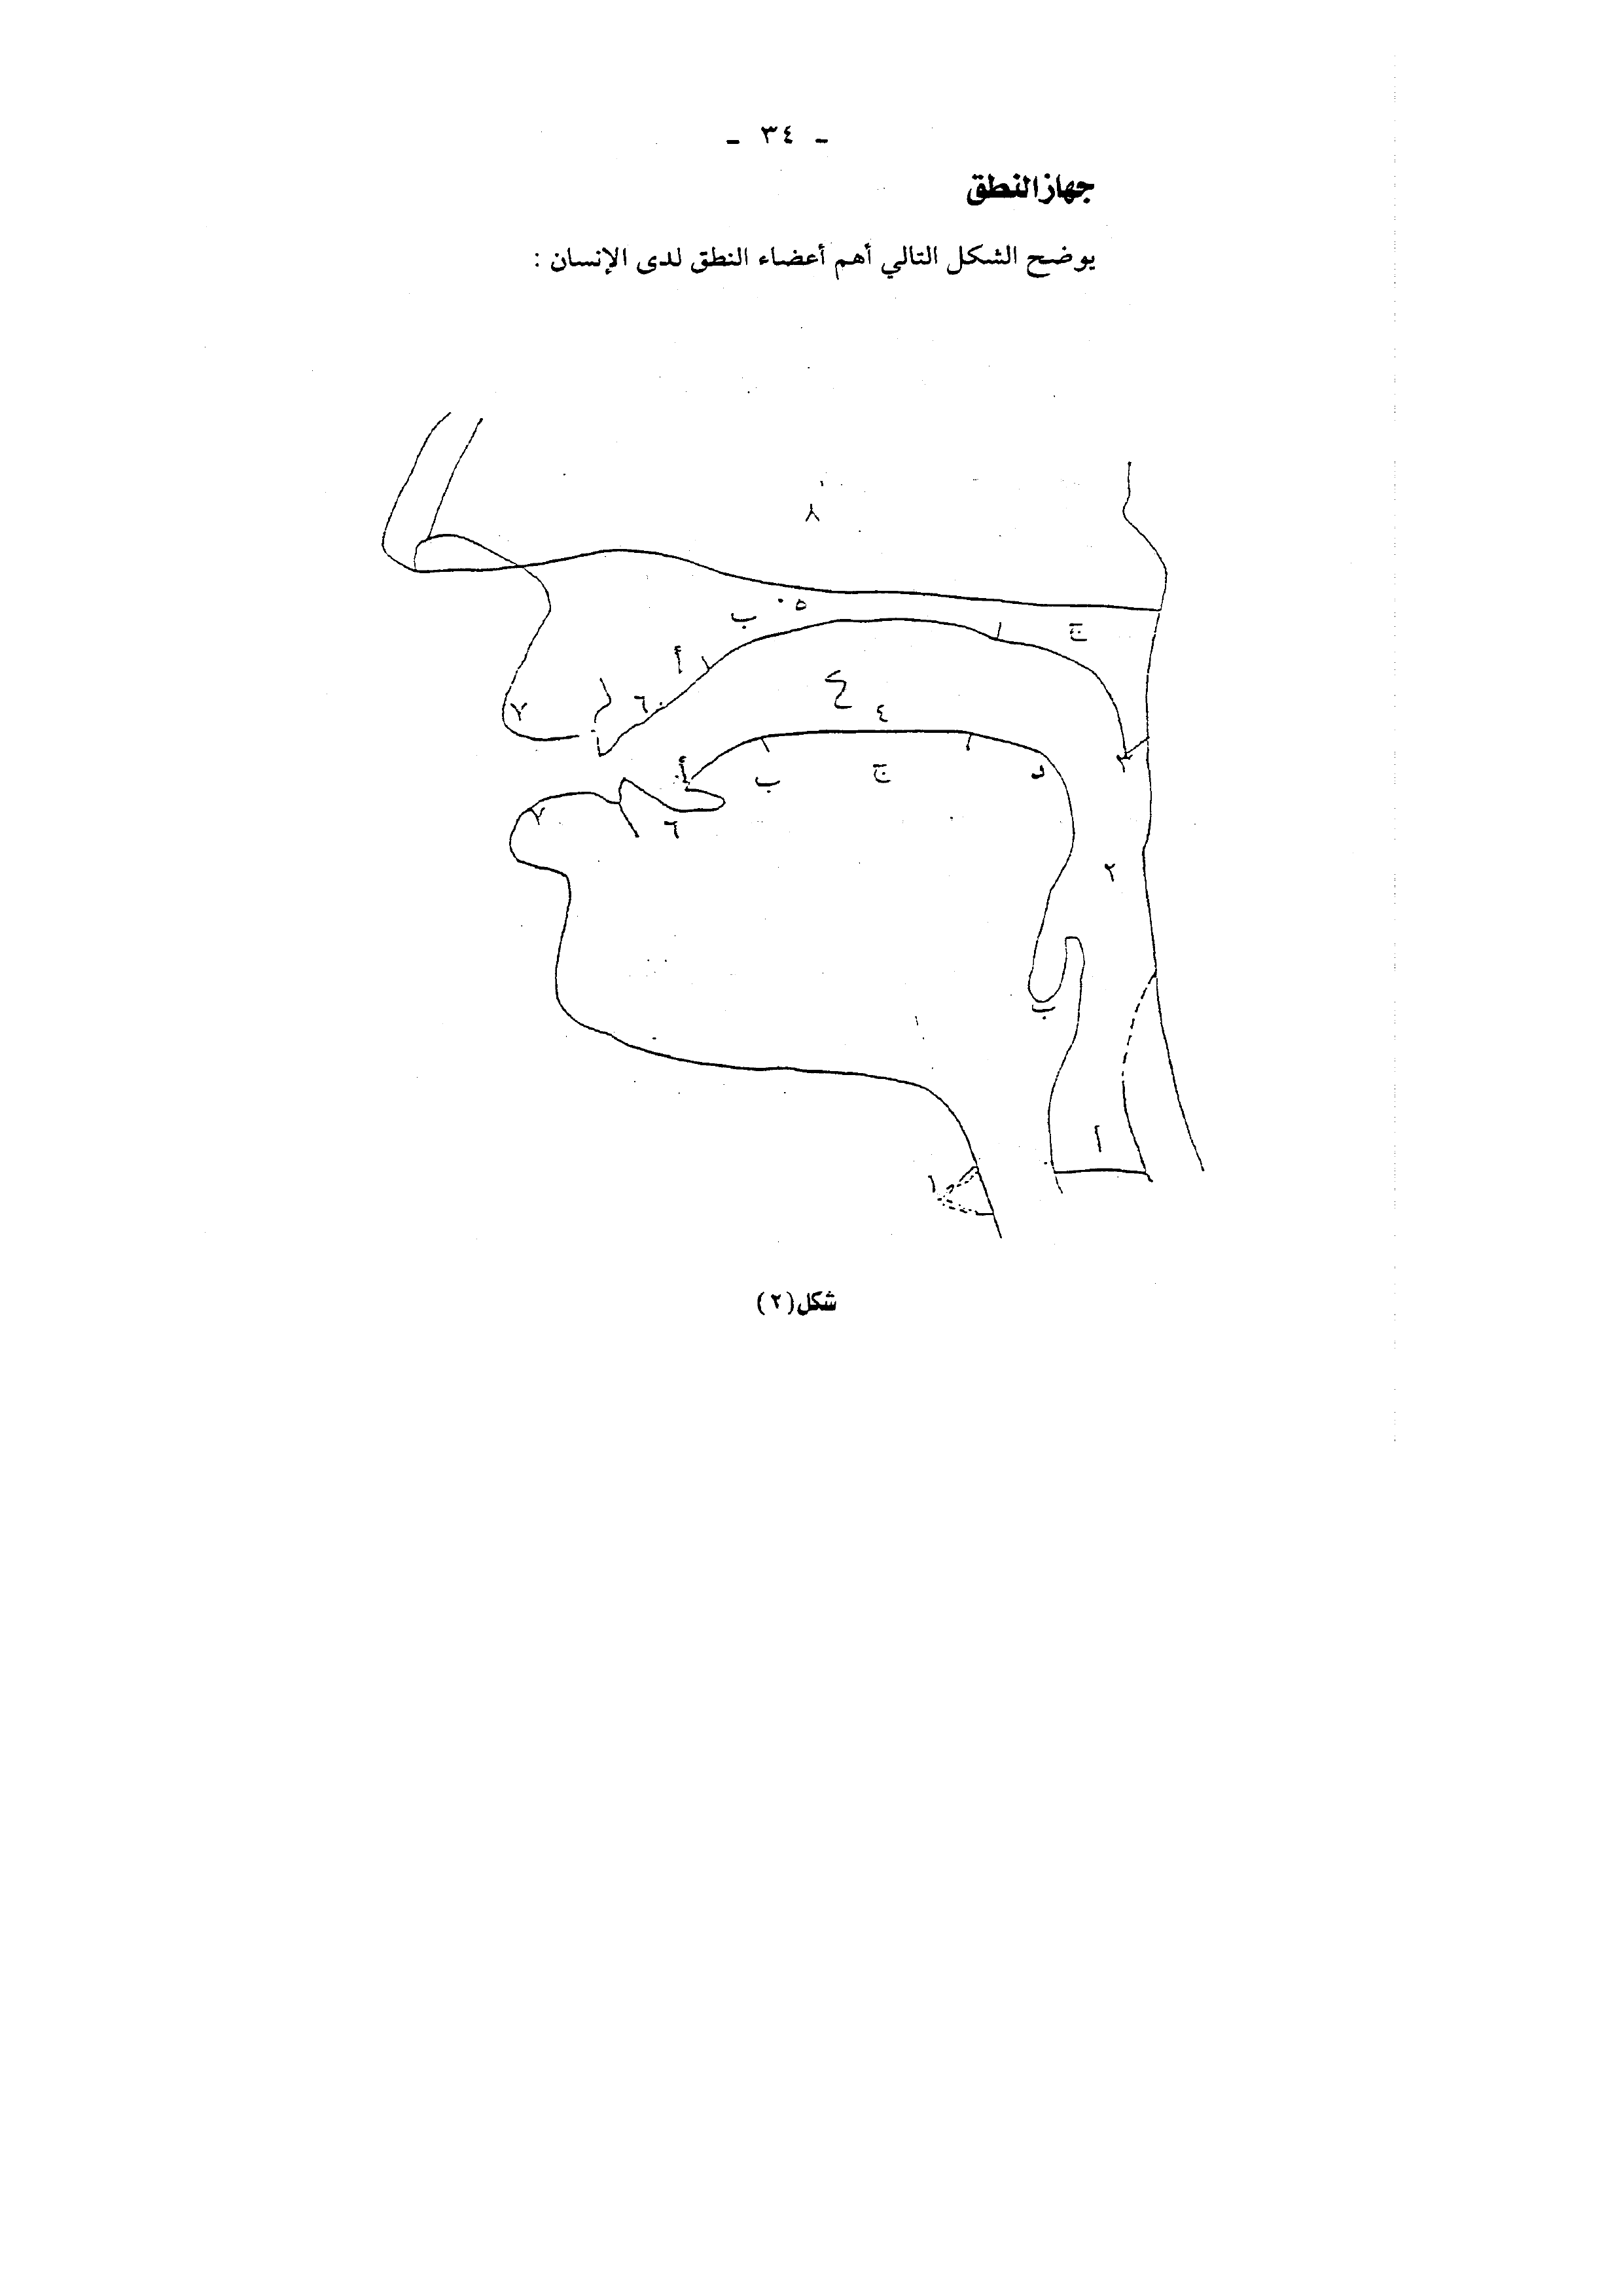 - ٣٤ -
جهاز النطق
يوضح الشكل التالي أهم أعضاء النطق لدى الإنسان :
٨
٥
ب
ج
أ
٦
٧
٤
٤
٣
أ
ب
ج
د
٧
٦
٢
ب
أ
١
شكل (٢)